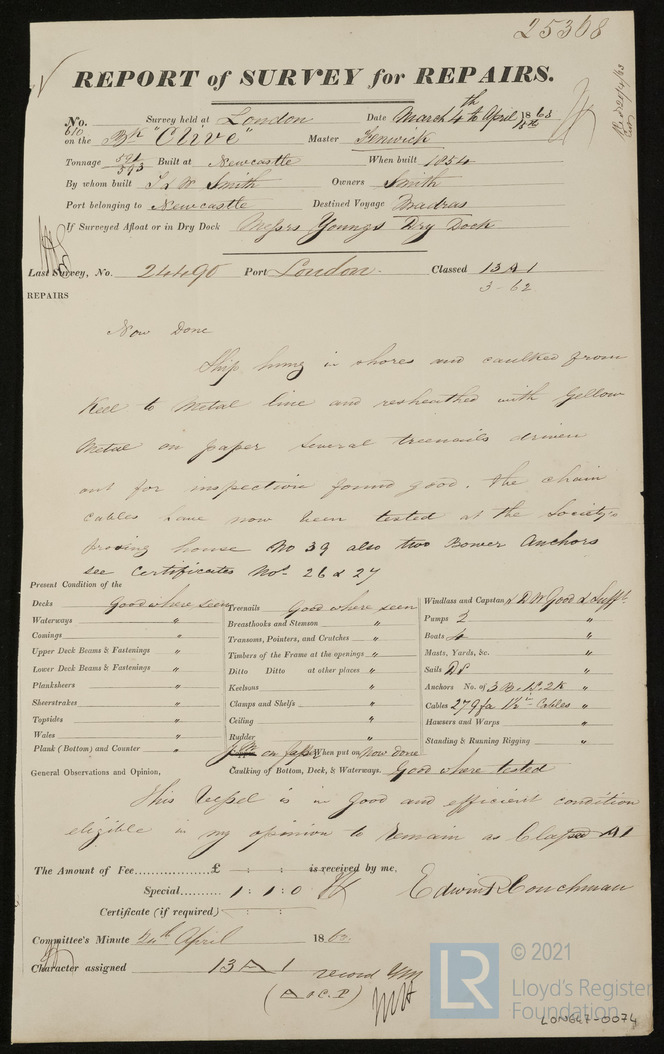 25368
REPORT of SURVEY for REPAIRS.
No. Survey held at London Date March 4th to April 18th 1863
610
on the Bk "Clive" Master Fenwick
Tonnage 591/593 Built at Newcastle When built 1854
By whom built T & W Smith Owners Smith
Port belonging to Newcastle Destined Voyage Madras
If Surveyed Afloat or in Dry Dock Messrs Youngs Dry Dock
Last Survey, No. 24490 Port London. Classed 13 A 1
3-62
REPAIRS
Now Done
Ship hung in shores and caulked from
Keel to Metal line and resheathed with Yellow
Metal on paper several treenails driven
out for inspection found good. The chain
cables have now been tested at the Society's
proving house No 39 also two Bower Anchors
see Certificates Nos. 26 & 27
Present Condition of the
Decks Good where seen Treenails Good where seen Windlass and Capstan Good & Sufft.
Waterways " Breasthooks and Stemson " Pumps 2 "
Comings " Transoms, Pointers, and Crutches " Boats 4 "
Upper Deck Beams & Fastenings " Timbers of the Frame at the openings " Masts, Yards, &c. "
Lower Deck Beams & Fastenings " Ditto Ditto at other places " Sails "
Planksheers " Keelsons " Anchors No. of 3 B, 1 S, 2 K "
Sheerstrakes " Clamps and Shelfs " Cables 279 fa 1½ in Cables "
Topsides " Ceiling " Hawsers and Warps "
Wales " Rudder " Standing & Running Rigging "
Plank (Bottom) and Counter " on paper When put on Now done
General Observations and Opinion, Caulking of Bottom, Deck, & Waterways. Good where tested
This Vessel is in Good and efficient condition
eligible in my opinion to remain as Classed A 1
The Amount of Fee.................£ : : is received by me,
Special.......... 1 : 1 : 0 Edwin R Couchman
Certificate (if required) : :
Committee's Minute 24th April 1863
Character assigned 13 A 1 record YM
(A & C.P)
© 2021
LR Lloyd's Register
Foundation
LON647-0074